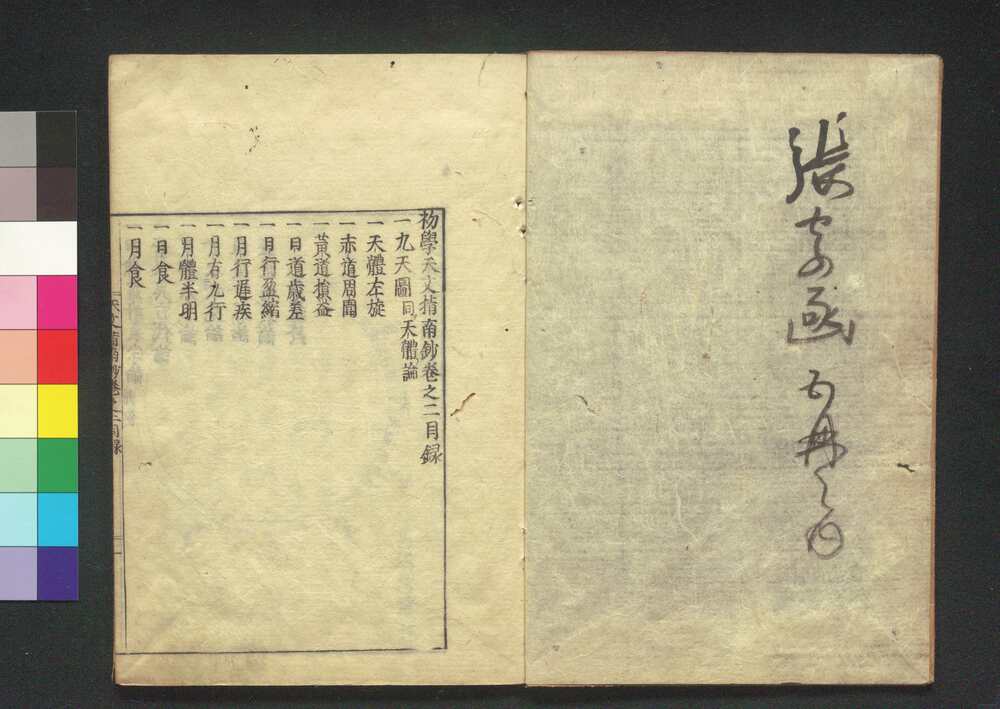 張字函 五冊之内
初學天文指南鈔卷之二目録
一九天圖 同天體論
一天體左旋
一赤道周圍
一黄道損益
一日道歳差
一日行盈縮
一月行遲疾
一月有九行
一月體半明
一日食
一月食
天文指南鈔卷之二目録